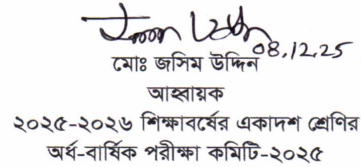 08.12.25
মোঃ জসিম উদ্দিন
আহ্বায়ক
২০২৫-২০২৬ শিক্ষাবর্ষের একাদশ শ্রেণির
অর্ধ-বার্ষিক পরীক্ষা কমিটি-২০২৫